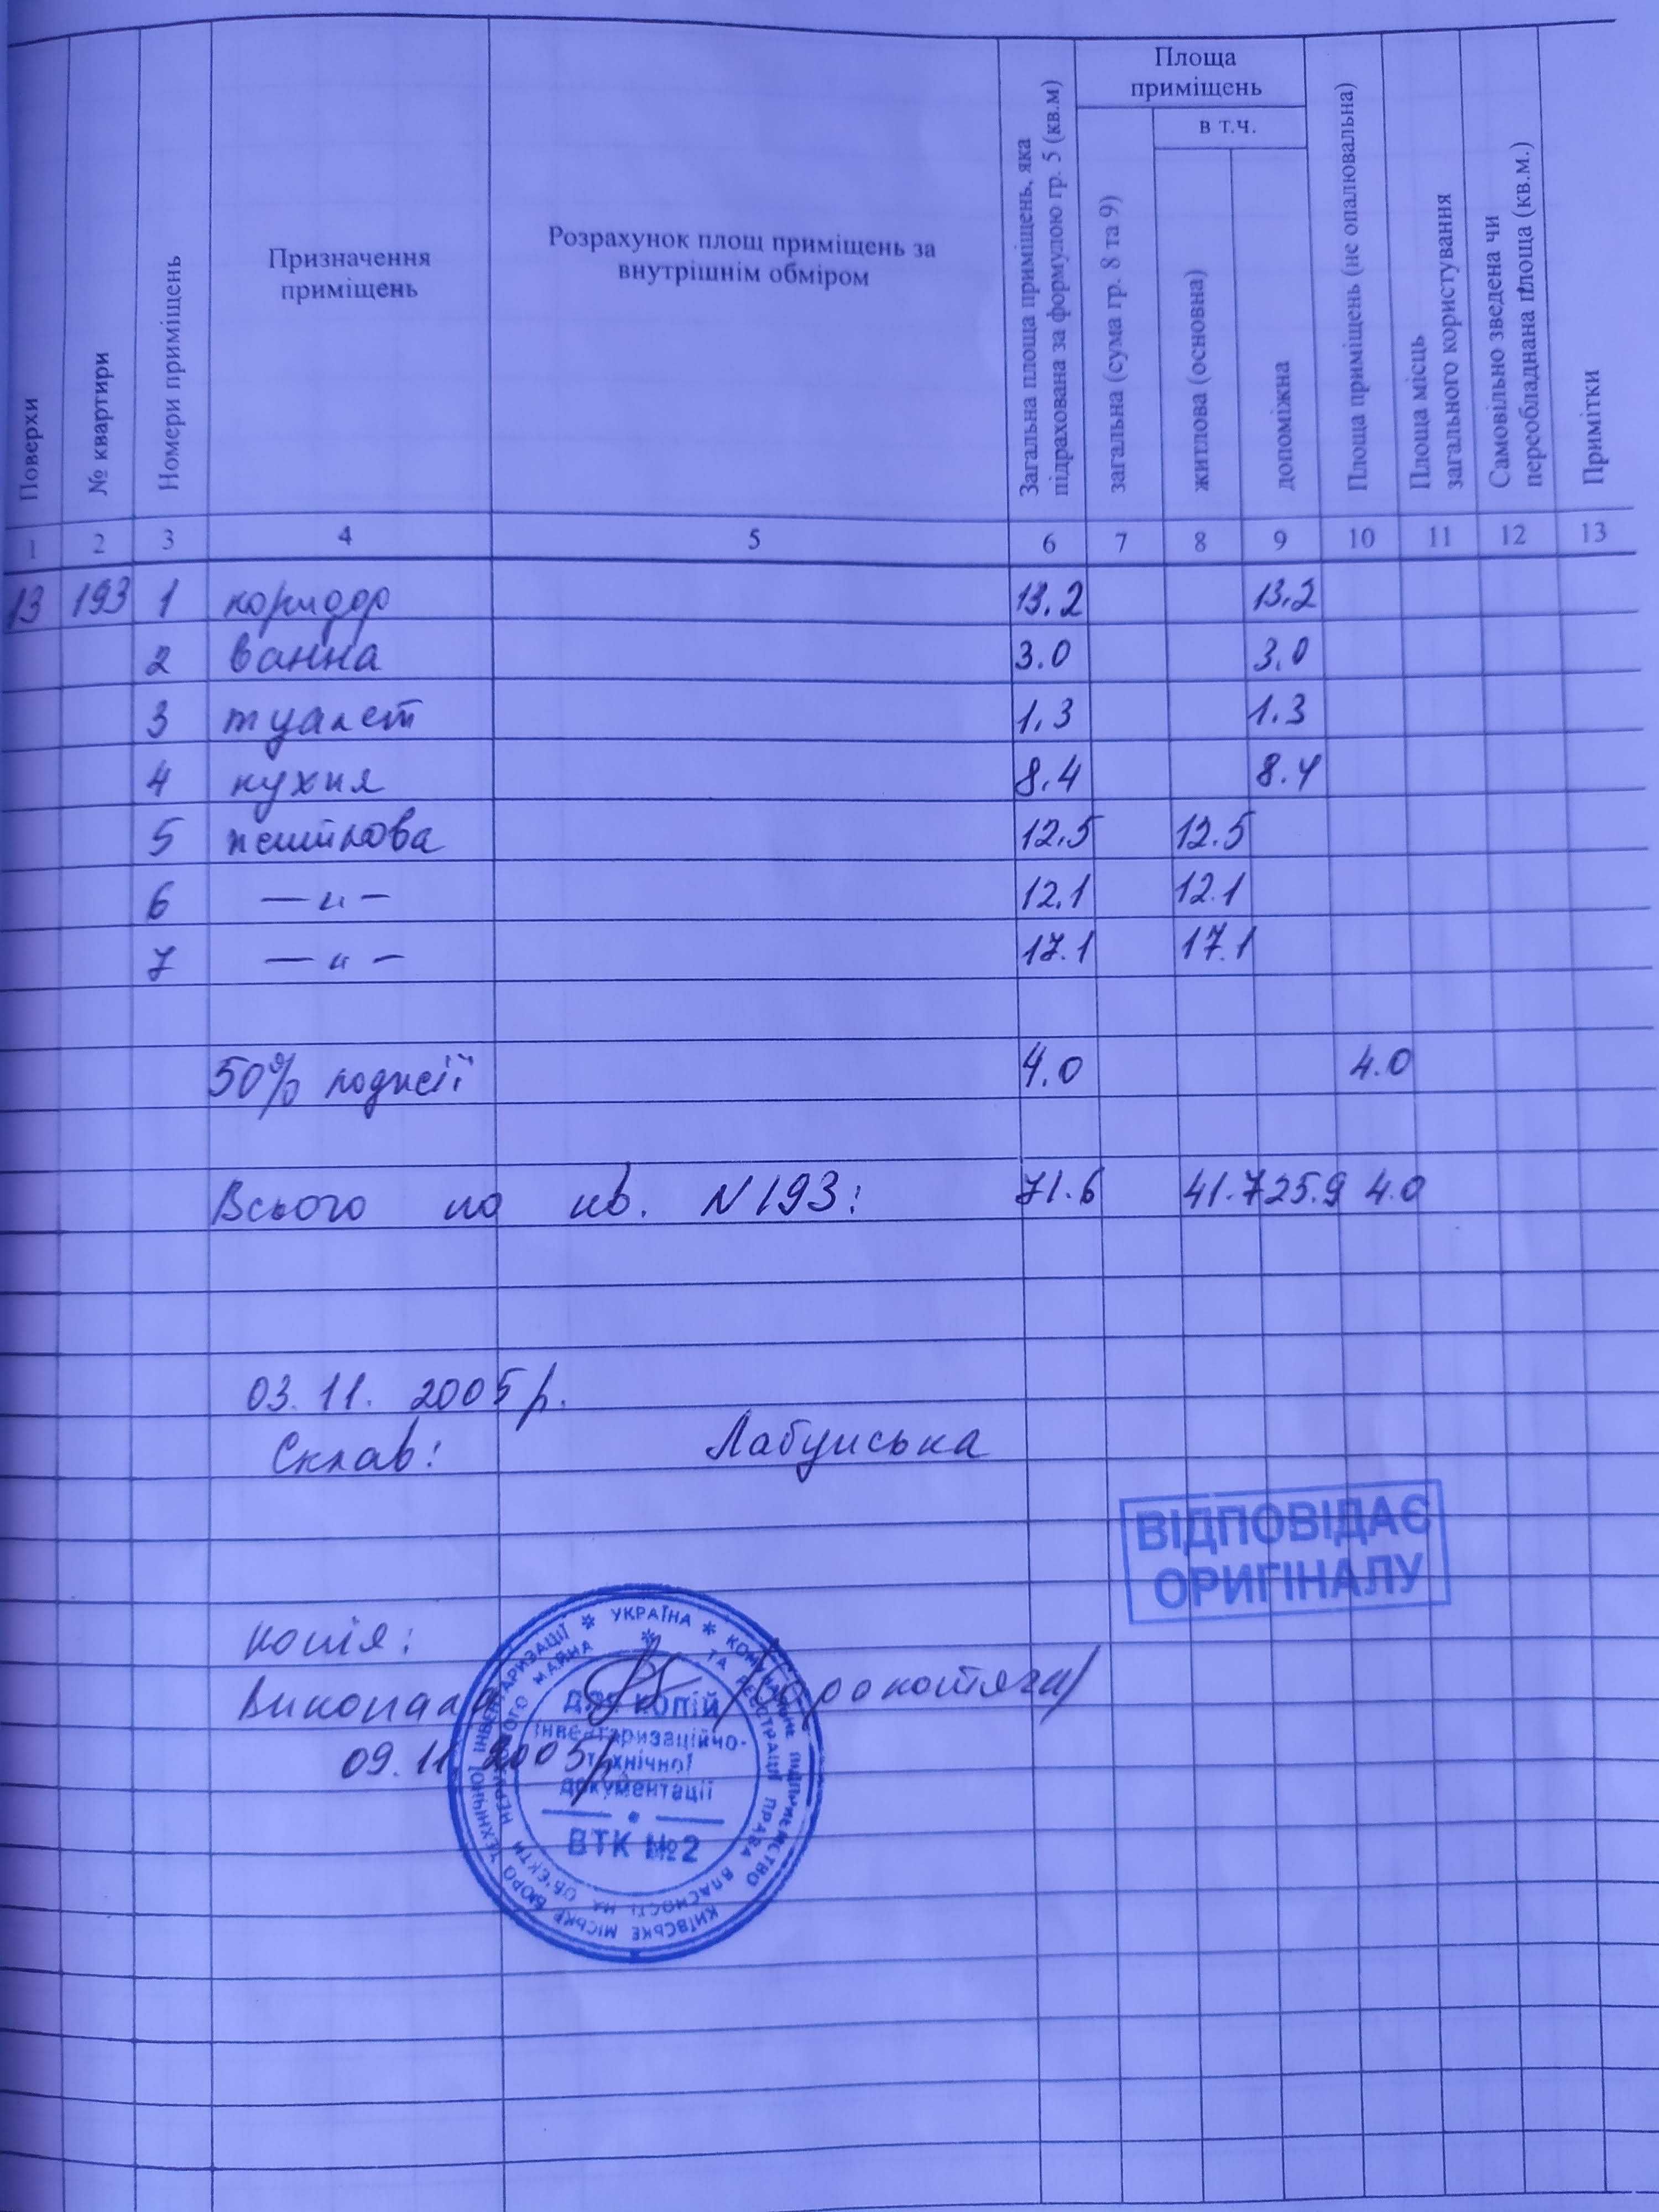 Поверхи
№ квартири
Номери приміщень
Призначення
приміщень
Розрахунок площ приміщень за
внутрішнім обміром
Загальна площа приміщень, яка
підрахована за формулою гр. 5 (кв.м)
Площа
приміщень
загальна (сума гр. 8 та 9)
в т.ч.
житлова (основна)
допоміжна
Площа приміщень (не опалювальна)
Площа місць
загального користування
Самовільно зведена чи
переобладнана площа (кв.м.)
Примітки
1 2 3 4 5 6 7 8 9 10 11 12 13
13 193 1 коридор 13.2 13.2
2 ванна 3.0 3.0
3 туалет 1.3 1.3
4 кухня 8.4 8.4
5 житлова 12.5 12.5
6 — " — 12.1 12.1
7 — " — 17.1 17.1
50% лоджії 4.0 4.0
Всього по кв. N193: 71.6 41.7 25.9 4.0
03.11. 2005р.
Склав: Лабунська
ВІДПОВІДАЄ
ОРИГІНАЛУ
копія:
Виконала
09.11.2005р.
УКРАЇНА * КОМУНАЛЬНЕ ПІДПРИЄМСТВО
КИЇВСЬКЕ МІСЬКЕ БЮРО ТЕХНІЧНОЇ ІНВЕНТАРИЗАЦІЇ *
ТА РЕЄСТРАЦІЇ ПРАВА ВЛАСНОСТІ НА ОБ'ЄКТИ НЕРУХОМОГО МАЙНА *
для копій
інвентаризаційно-
технічної
документації
ВТК №2